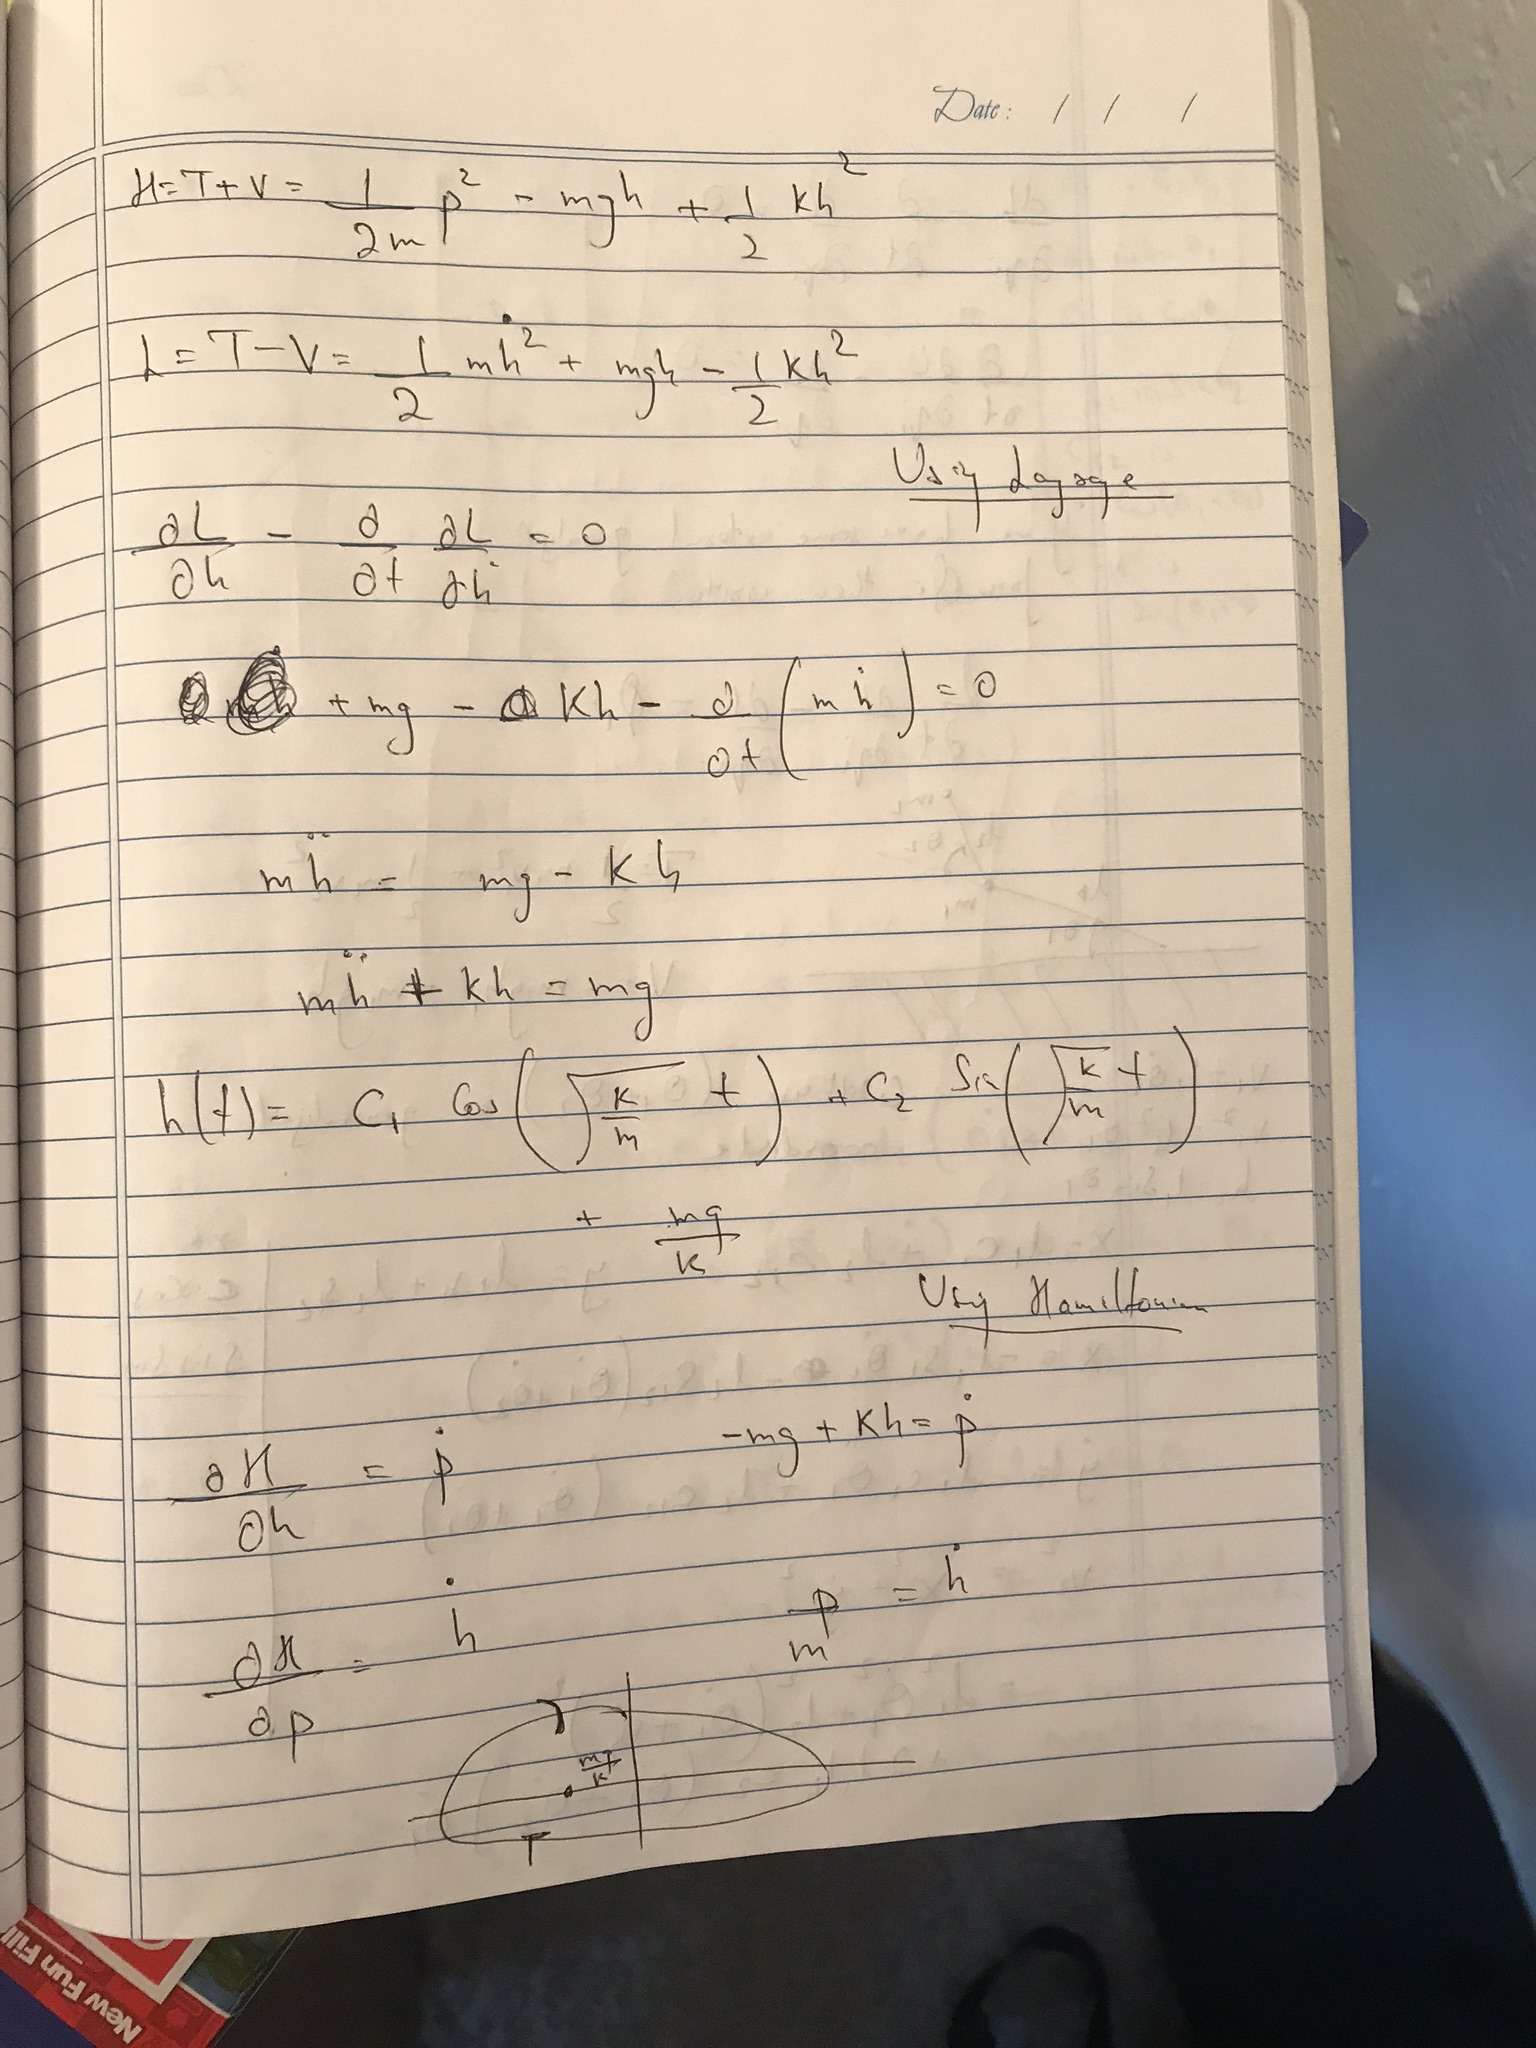 Date: / / /
H = T + V = 1/2m p² - mgh + 1/2 kh²
L = T - V = 1/2 mḣ² + mgh - 1/2 kh²
Using Lagrange
∂L/∂h - ∂/∂t ∂L/∂ḣ = 0
+ mg - kh - ∂/∂t (mḣ) = 0
mḧ = mg - kh
mḧ + kh = mg
h(t) = C₁ Cos(√(k/m) t) + C₂ Sin(√(k/m) t)
+ mg/k
Using Hamiltonian
∂H/∂h = ṗ -mg + kh = ṗ
∂H/∂p = ḣ p/m = ḣ
mg/k
New Fun Fill